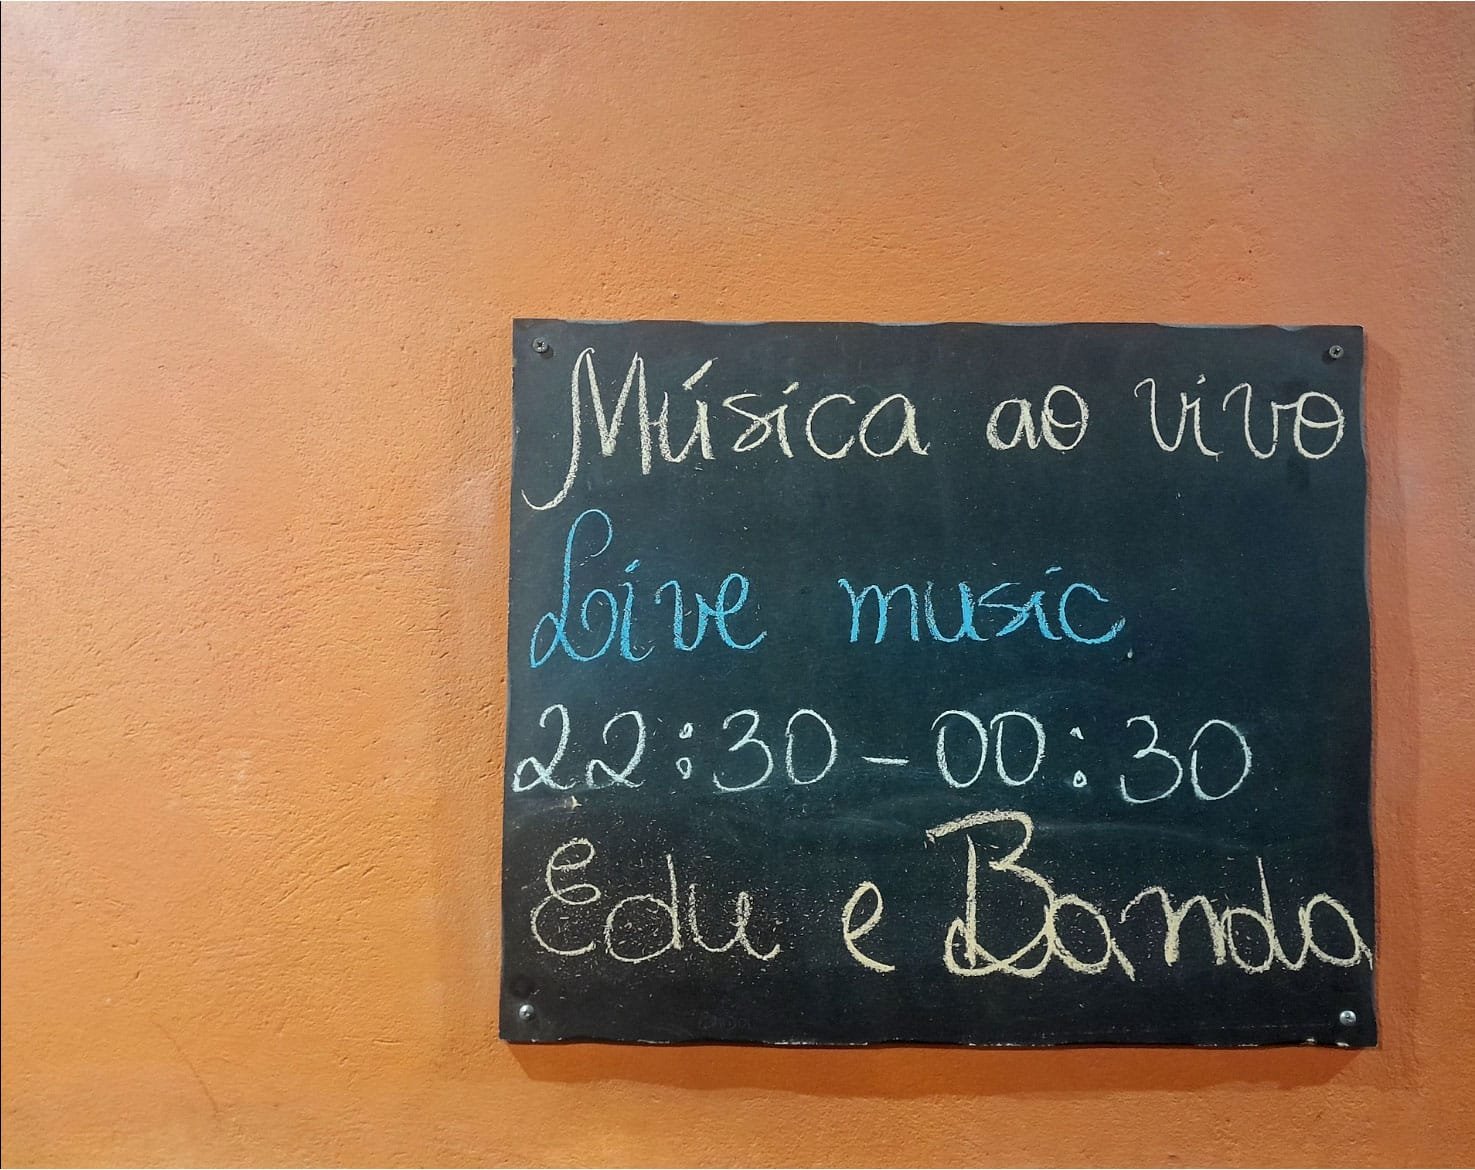 Música ao vivo
Live music
22:30-00:30
Edu e Banda